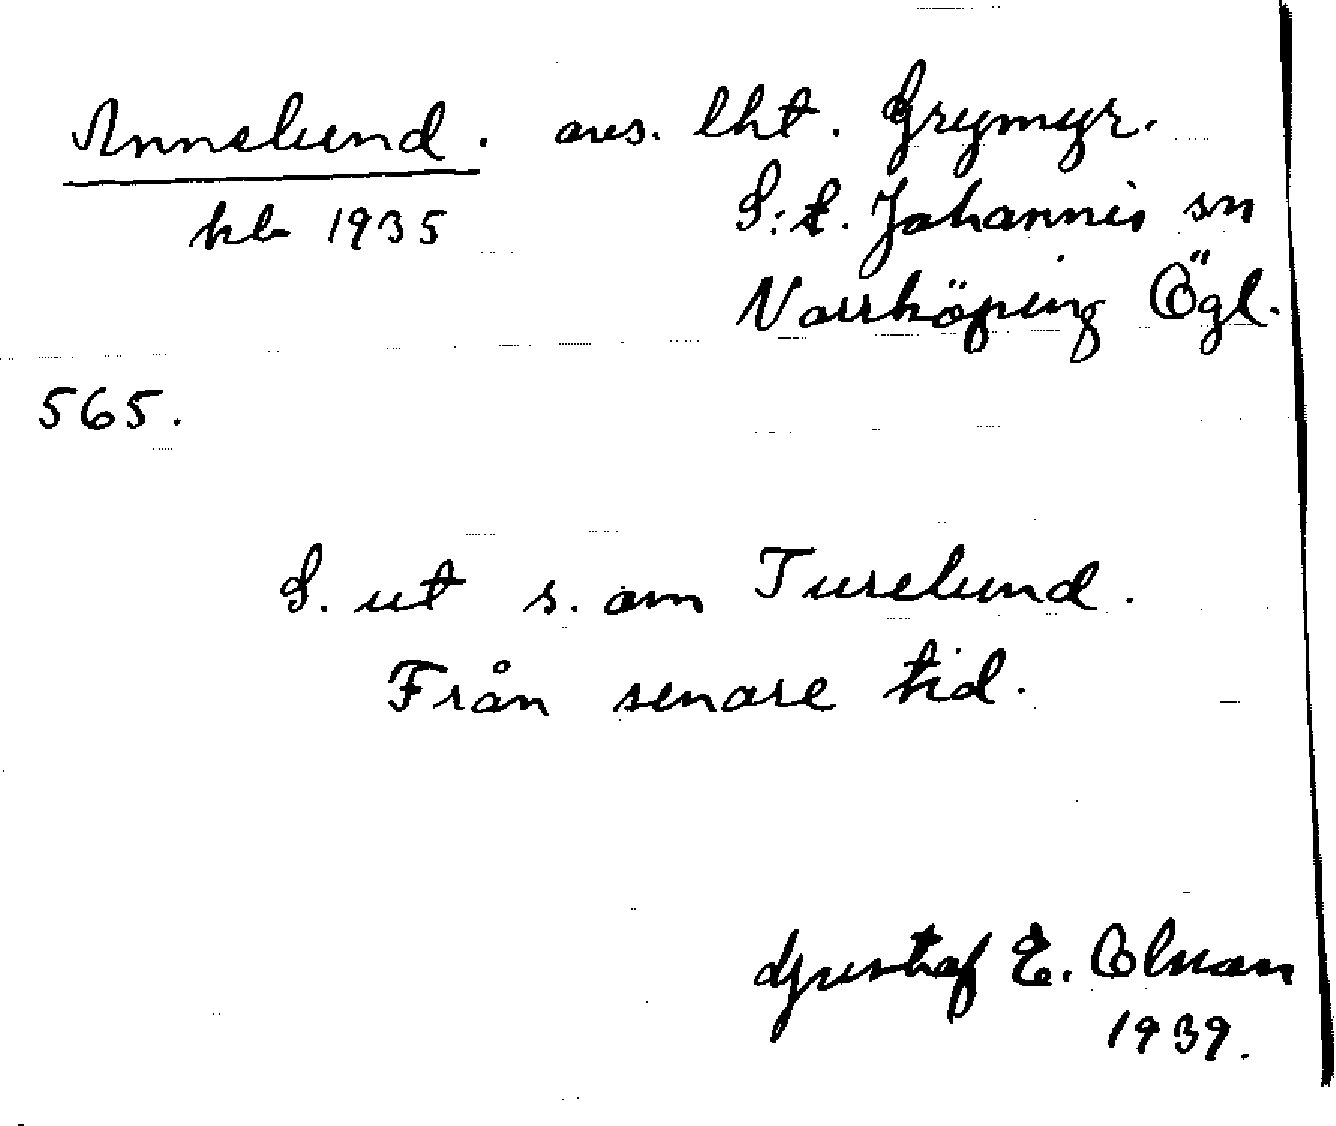 Annelund. avs. lht. Grymyr.
klr 1935 S:t. Johannis sn
Norrköping Ögl.
565.
S. ut s. om Turelund.
Från senare tid.
Gustaf E.
1939.